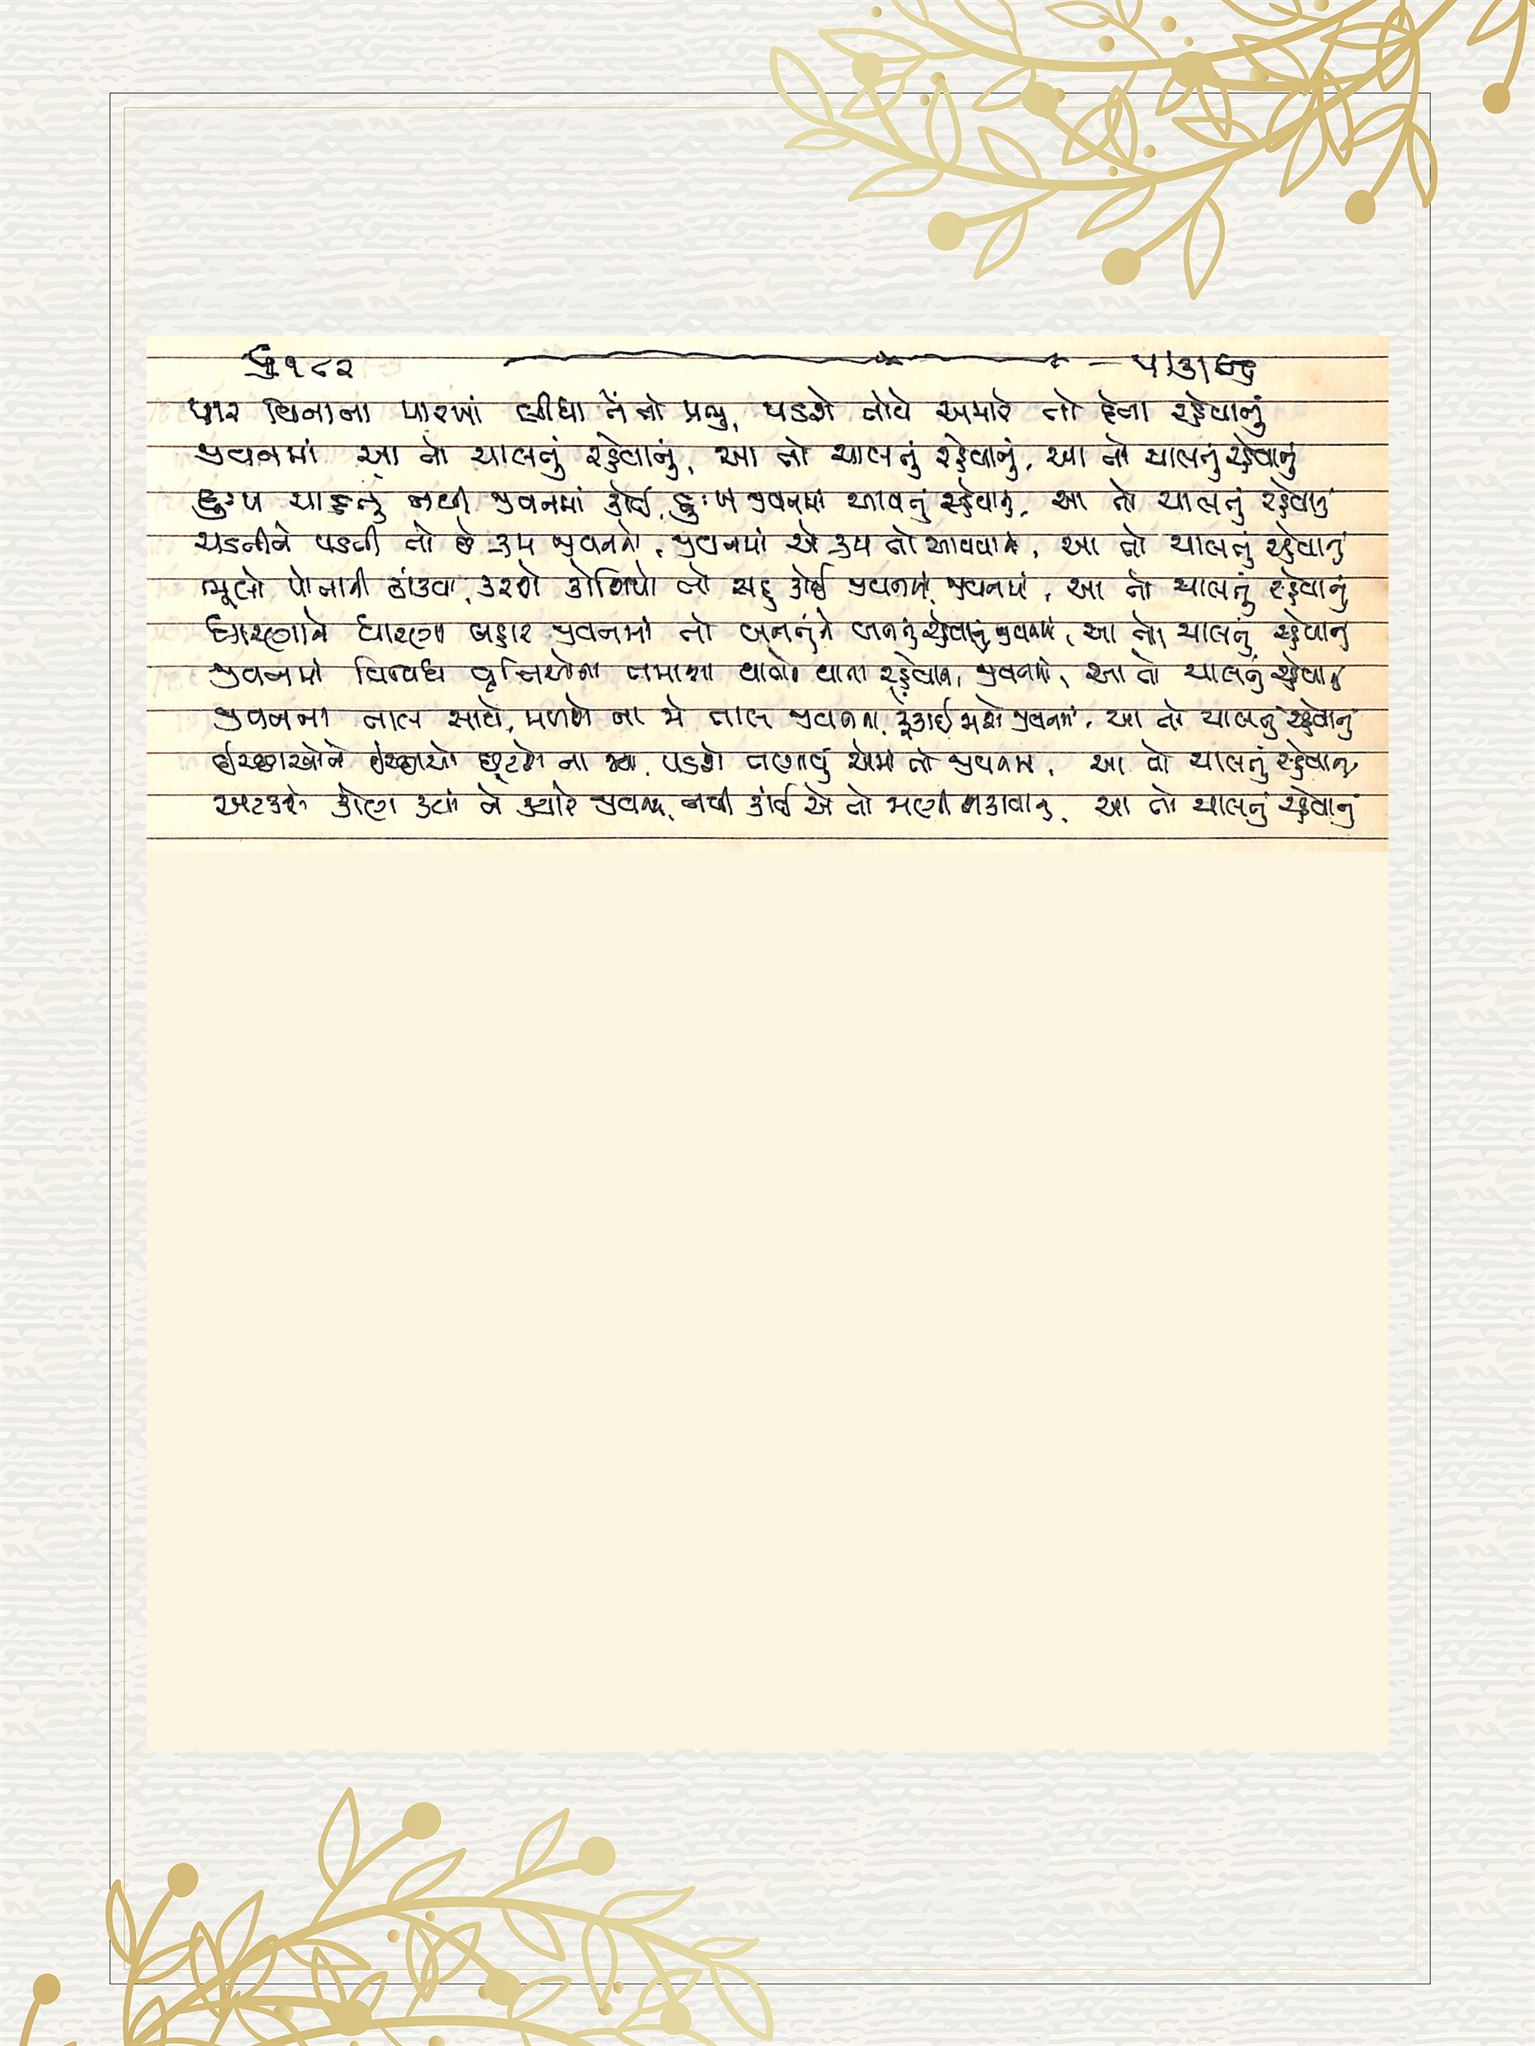 ૧૮૨
પાર વિનાના પારખાં લીધા તેં તો પ્રભુ, પડશે તોયે અમારે તો દેતા રહેવાનું
જીવનમાં આ તો ચાલતું રહેવાનું, આ તો ચાલતું રહેવાનું, આ તો ચાલતું રહેવાનું
દુઃખ ચાહતું નથી જીવનમાં કોઈ, દુઃખ જીવનમાં આવતું રહેવાનું, આ તો ચાલતું રહેવાનું
ચડતીને પડતી તો છે ક્રમ જીવનનો, જીવનમાં એ ક્રમ તો આવવાનો, આ તો ચાલતું રહેવાનું
ભૂલો પોતાની ઢાંકવા, કરશે કોશિશો તો સહુ કોઈ જીવનમાં, જીવનમાં, આ તો ચાલતું રહેવાનું
ધારણાને ધારણા બહાર જીવનમાં તો બનતુંને બનતું રહેવાનું જીવનમાં, આ તો ચાલતું રહેવાનું
જીવનમાં વિવિધ વૃત્તિઓના તમાશા થાતાને થાતા રહેવાના, જીવનમાં, આ તો ચાલતું રહેવાનું
જીવનના તાલ સાથે, મળશે ના જો તાલ જીવનના, ફેંકાઈ જાશો જીવનમાં, આ તો ચાલતું રહેવાનું
ઈચ્છાઓને ઈચ્છાઓ છૂટશે ના જ્યાં, પડશે તણાવું એમાં તો જીવનમાં, આ તો ચાલતું રહેવાનું
અટકશે કોણ ક્યાં ને ક્યારે જીવનમાં, નથી કાંઈ એ તો જાણી શકાવાનું, આ તો ચાલતું રહેવાનું